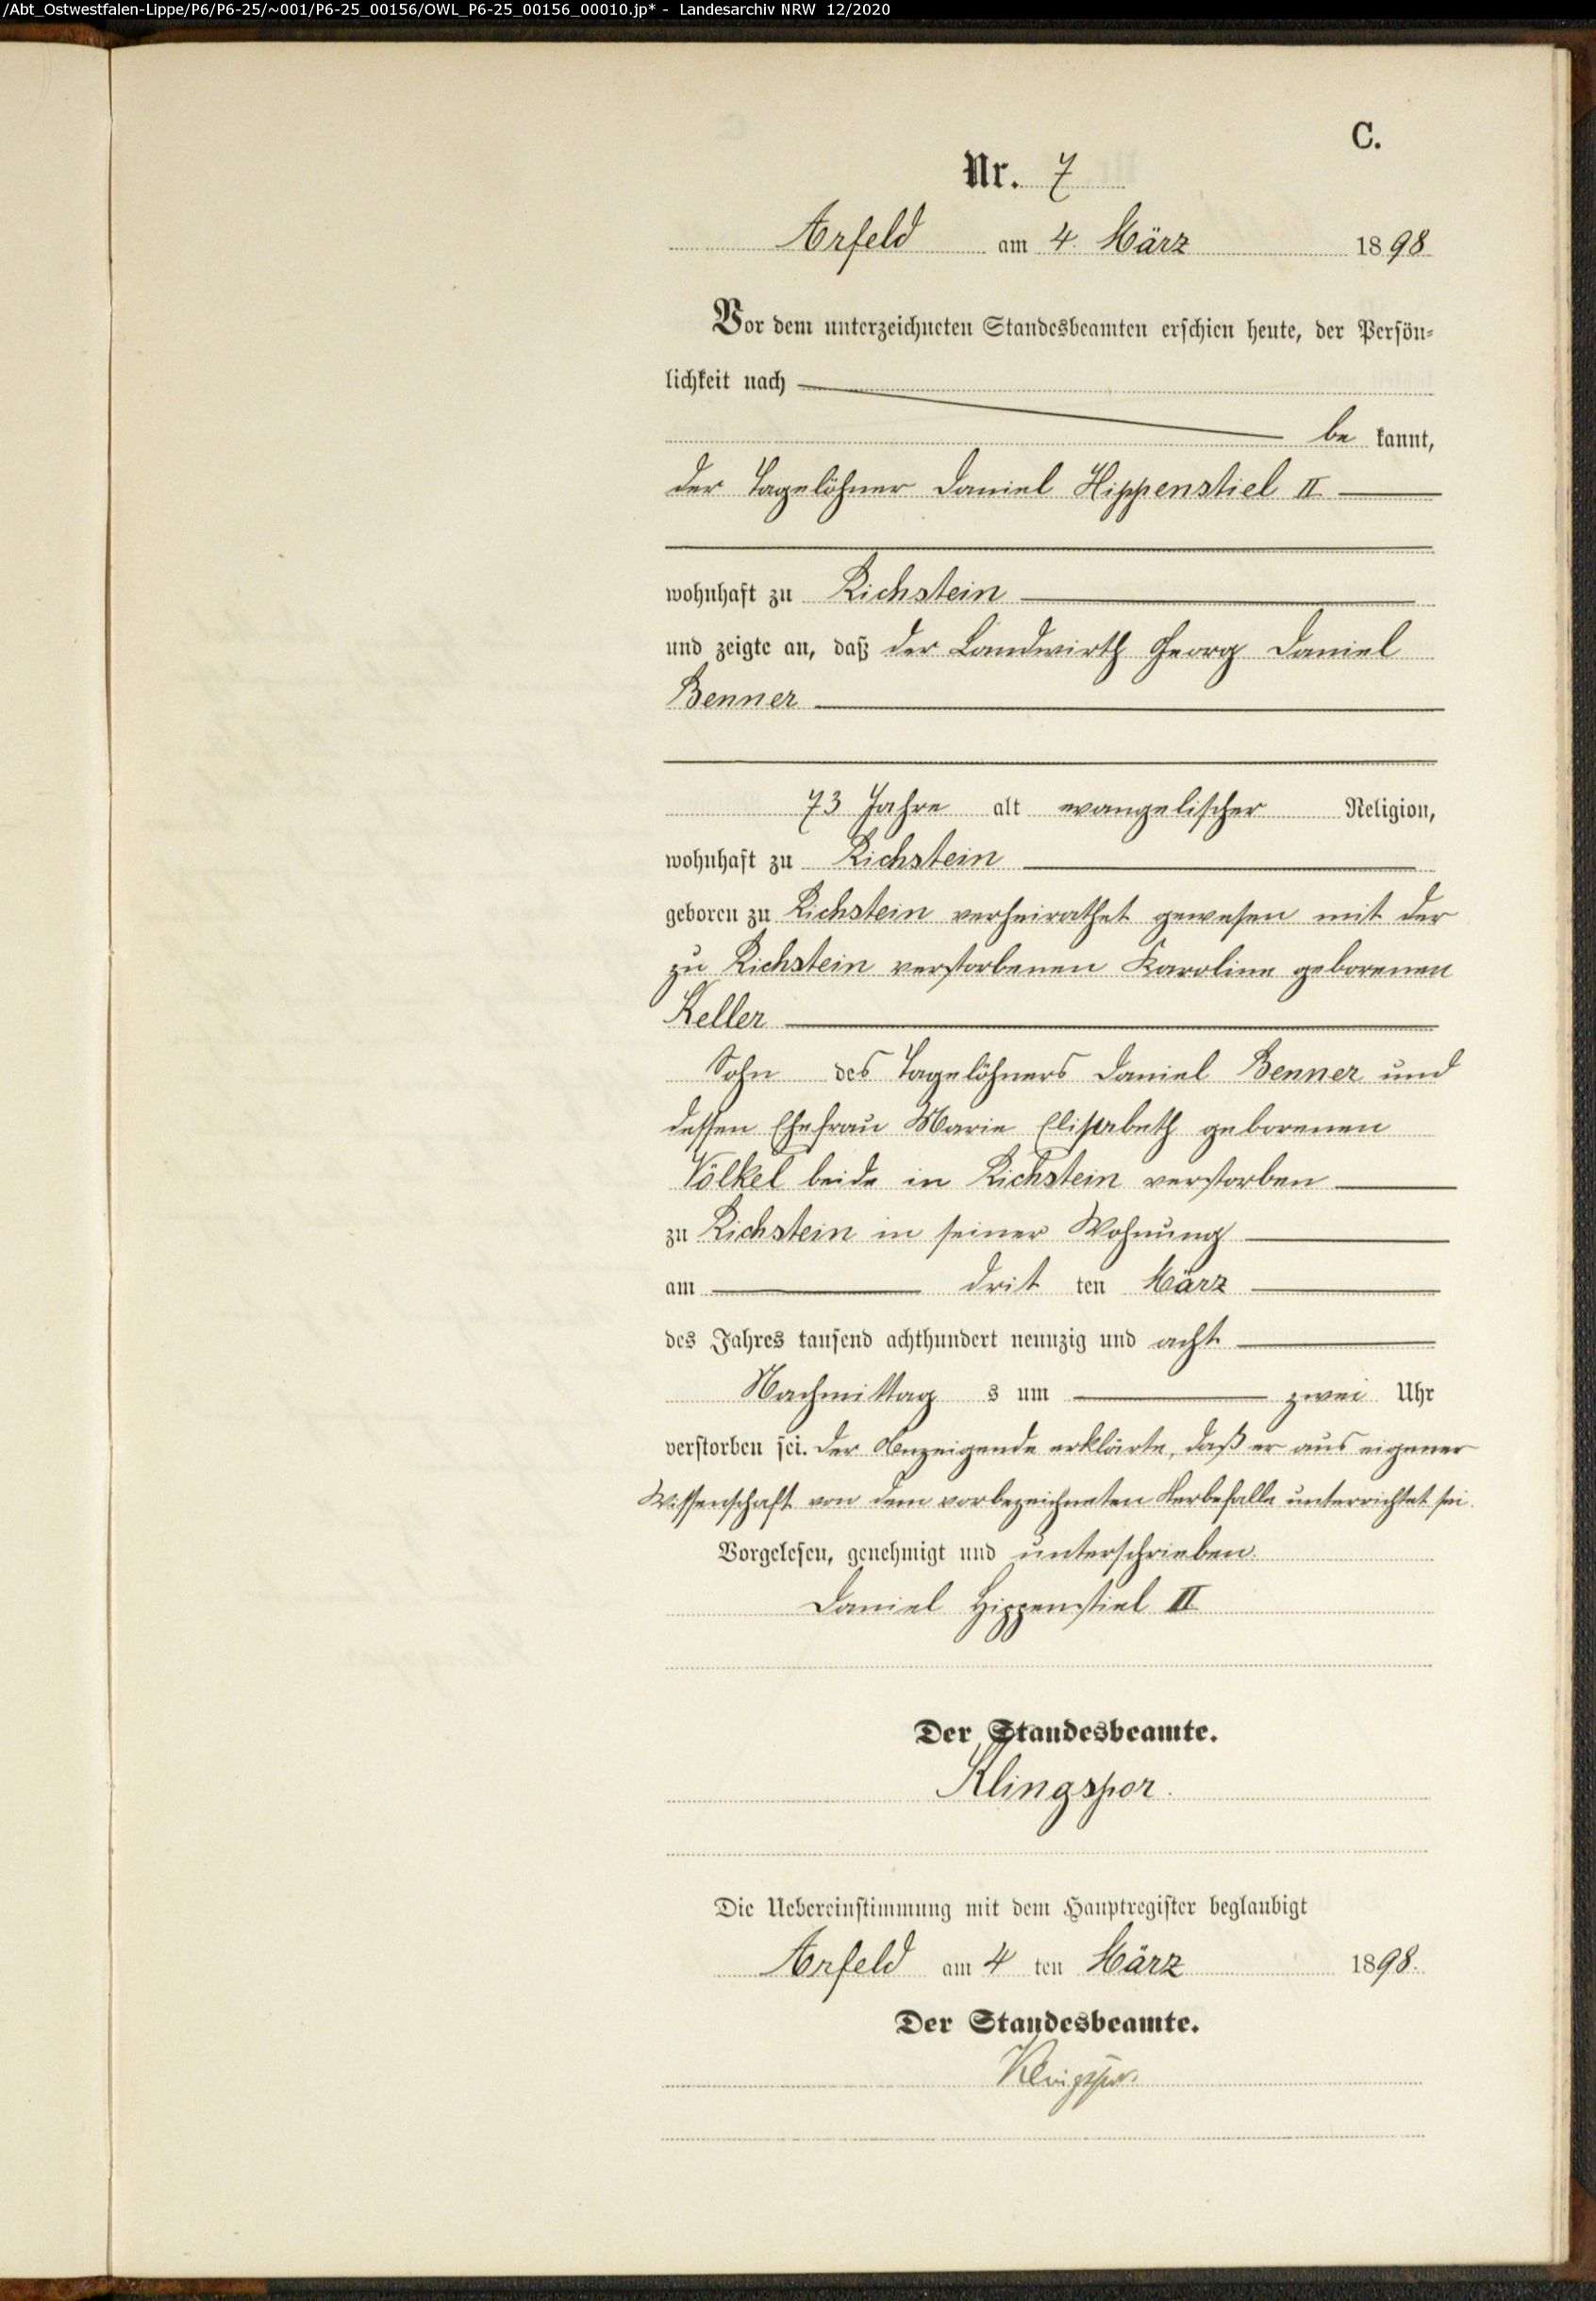 /Abt_Ostwestfalen-Lippe/P6/P6-25/~001/P6-25_00156/OWL_P6-25_00156_00010.jp* - Landesarchiv NRW 12/2020
C.
Nr. 7
Arfeld am 4. März 1898
Vor dem unterzeichneten Standesbeamten erschien heute, der Persön-
lichkeit nach
be kannt,
der Tagelöhner Daniel Hippenstiel II
wohnhaft zu Richstein
und zeigte an, daß der Landwirth Georg Daniel
Benner
73 Jahre alt evangelischer Religion,
wohnhaft zu Richstein
geboren zu Richstein verheirathet gewesen mit der
zu Richstein verstorbenen Karoline geborenen
Keller
Sohn des Tagelöhners Daniel Benner und
dessen Ehefrau Marie Elisabeth geborenen
Völkel beide in Richstein verstorben
zu Richstein in seiner Wohnung
am drit ten März
des Jahres tausend achthundert neunzig und acht
Nachmittag s um zwei Uhr
verstorben sei. Der Anzeigende erklärte, daß er aus eigener
Wissenschaft von dem vorbezeichneten Sterbefalle unterrichtet sei.
Vorgelesen, genehmigt und unterschrieben.
Daniel Hippenstiel II
Der Standesbeamte.
Klingspor.
Die Uebereinstimmung mit dem Hauptregister beglaubigt
Arfeld am 4 ten März 1898.
Der Standesbeamte.
Klingspor.